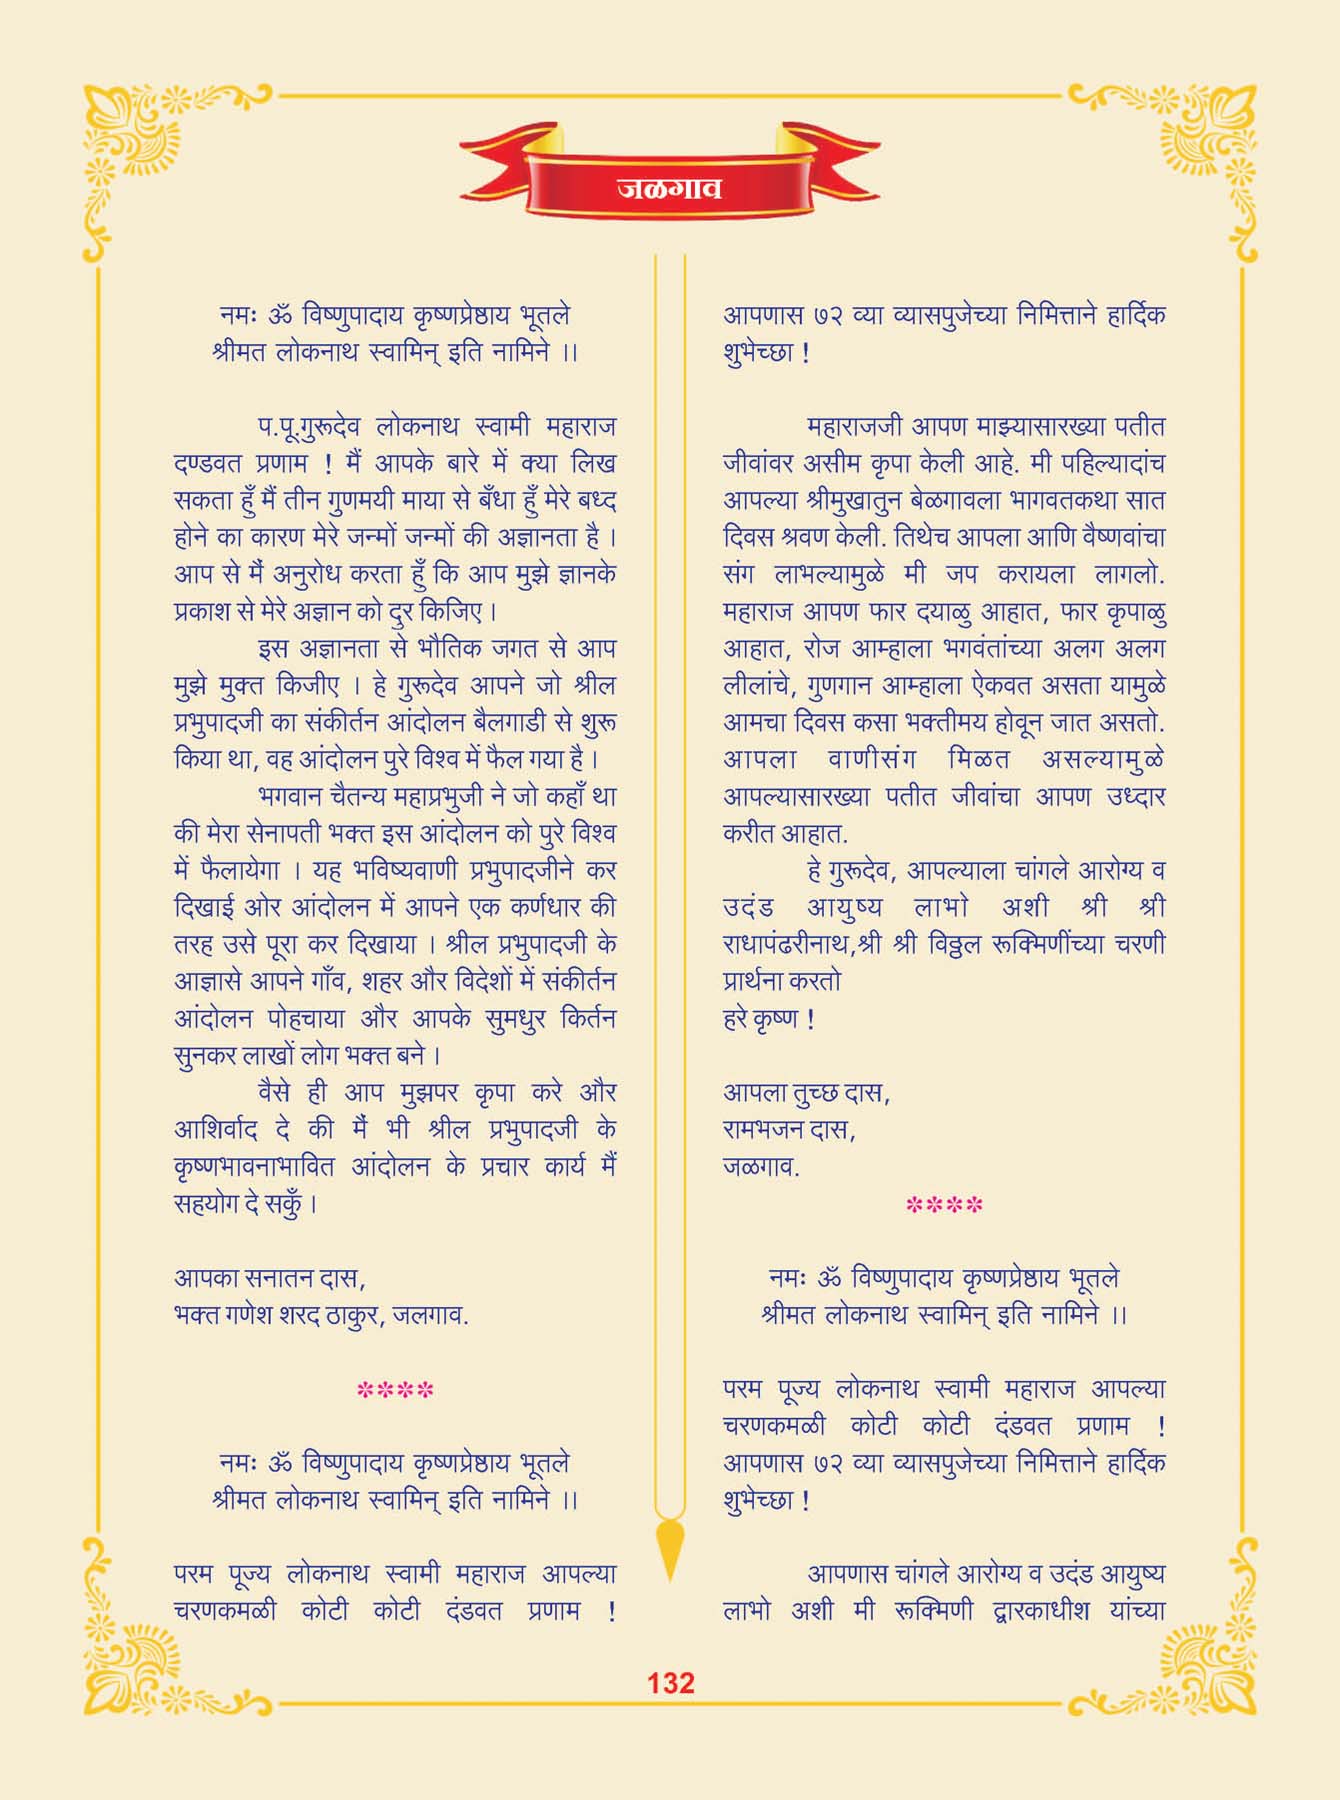 जळगाव
नमः ॐ विष्णुपादाय कृष्णप्रेष्ठाय भूतले
श्रीमत लोकनाथ स्वामिन् इति नामिने ।।
प.पू.गुरूदेव लोकनाथ स्वामी महाराज
दण्डवत प्रणाम ! मैं आपके बारे में क्या लिख
सकता हुँ मैं तीन गुणमयी माया से बँधा हुँ मेरे बध्द
होने का कारण मेरे जन्मों जन्मों की अज्ञानता है ।
आप से मैं अनुरोध करता हुँ कि आप मुझे ज्ञानके
प्रकाश से मेरे अज्ञान को दुर किजिए ।
इस अज्ञानता से भौतिक जगत से आप
मुझे मुक्त किजीए । हे गुरूदेव आपने जो श्रील
प्रभुपादजी का संकीर्तन आंदोलन बैलगाडी से शुरू
किया था, वह आंदोलन पुरे विश्व में फैल गया है ।
भगवान चैतन्य महाप्रभुजी ने जो कहाँ था
की मेरा सेनापती भक्त इस आंदोलन को पुरे विश्व
में फैलायेगा । यह भविष्यवाणी प्रभुपादजीने कर
दिखाई ओर आंदोलन में आपने एक कर्णधार की
तरह उसे पूरा कर दिखाया । श्रील प्रभुपादजी के
आज्ञासे आपने गाँव, शहर और विदेशों में संकीर्तन
आंदोलन पोहचाया और आपके सुमधुर किर्तन
सुनकर लाखों लोग भक्त बने ।
वैसे ही आप मुझपर कृपा करे और
आशिर्वाद दे की मैं भी श्रील प्रभुपादजी के
कृष्णभावनाभावित आंदोलन के प्रचार कार्य मैं
सहयोग दे सकुँ ।
आपका सनातन दास,
भक्त गणेश शरद ठाकुर, जलगाव.
****
नमः ॐ विष्णुपादाय कृष्णप्रेष्ठाय भूतले
श्रीमत लोकनाथ स्वामिन् इति नामिने ।।
परम पूज्य लोकनाथ स्वामी महाराज आपल्या
चरणकमळी कोटी कोटी दंडवत प्रणाम !
आपणास ७२ व्या व्यासपुजेच्या निमित्ताने हार्दिक
शुभेच्छा !
महाराजजी आपण माझ्यासारख्या पतीत
जीवांवर असीम कृपा केली आहे. मी पहिल्यादांच
आपल्या श्रीमुखातुन बेळगावला भागवतकथा सात
दिवस श्रवण केली. तिथेच आपला आणि वैष्णवांचा
संग लाभल्यामुळे मी जप करायला लागलो.
महाराज आपण फार दयाळु आहात, फार कृपाळु
आहात, रोज आम्हाला भगवंतांच्या अलग अलग
लीलांचे, गुणगान आम्हाला ऐकवत असता यामुळे
आमचा दिवस कसा भक्तीमय होवून जात असतो.
आपला वाणीसंग मिळत असल्यामुळे
आपल्यासारख्या पतीत जीवांचा आपण उध्दार
करीत आहात.
हे गुरूदेव, आपल्याला चांगले आरोग्य व
उदंड आयुष्य लाभो अशी श्री श्री
राधापंढरीनाथ,श्री श्री विठ्ठल रूक्मिणींच्या चरणी
प्रार्थना करतो
हरे कृष्ण !
आपला तुच्छ दास,
रामभजन दास,
जळगाव.
****
नमः ॐ विष्णुपादाय कृष्णप्रेष्ठाय भूतले
श्रीमत लोकनाथ स्वामिन् इति नामिने ।।
परम पूज्य लोकनाथ स्वामी महाराज आपल्या
चरणकमळी कोटी कोटी दंडवत प्रणाम !
आपणास ७२ व्या व्यासपुजेच्या निमित्ताने हार्दिक
शुभेच्छा !
आपणास चांगले आरोग्य व उदंड आयुष्य
लाभो अशी मी रूक्मिणी द्वारकाधीश यांच्या
132